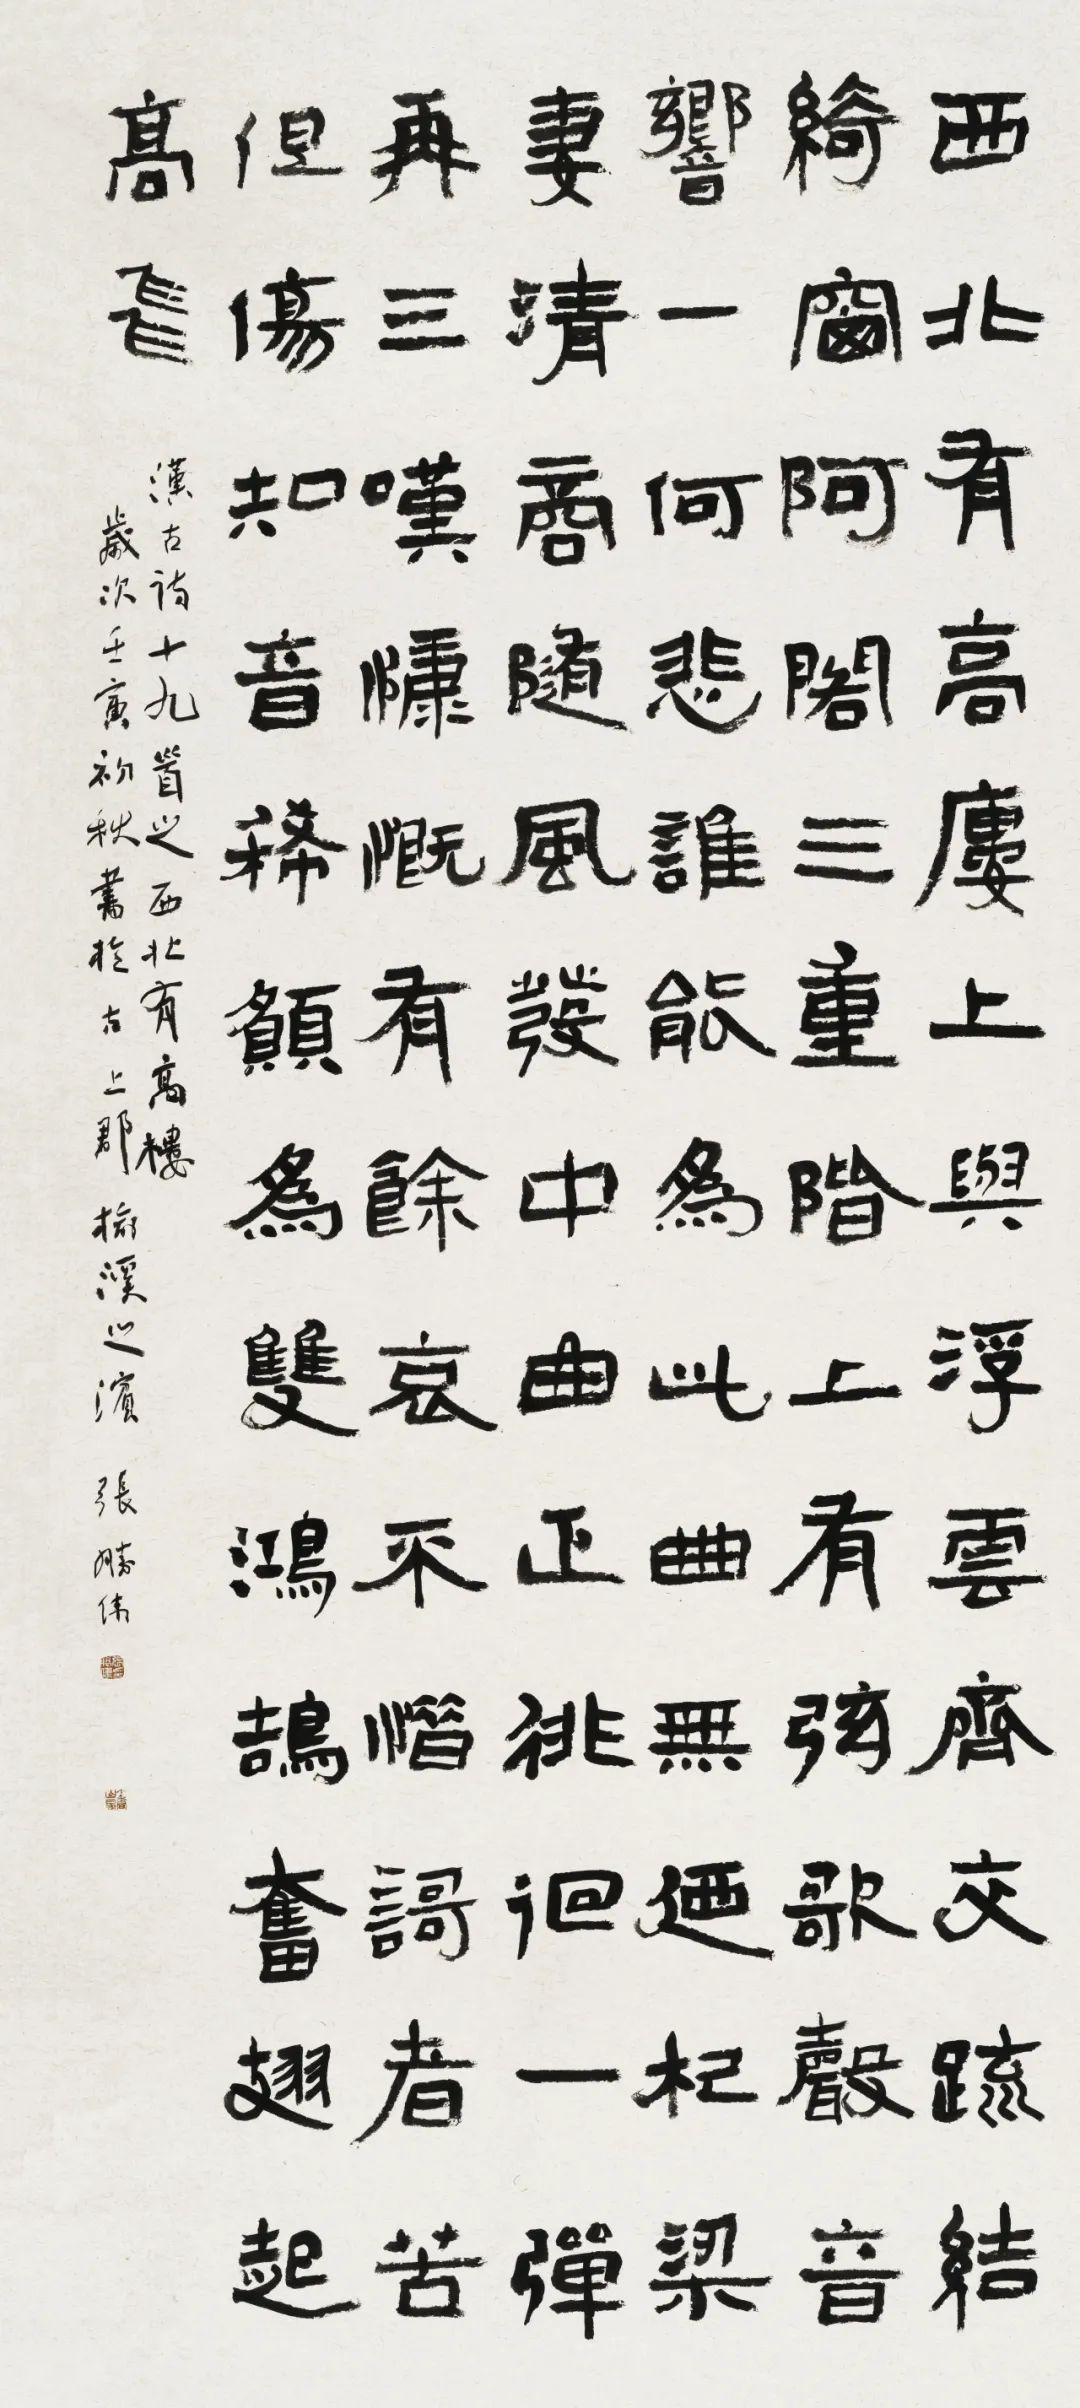 西北有高廔上與浮雲齊交疏結
綺窗阿閣三重階上有弦歌聲音
響一何悲誰能爲此曲無迺杞梁
妻清商隨風發中曲正徘徊一彈
再三嘆慷慨有餘哀不惜謌者苦
但傷知音稀願爲雙鴻鵠奮翅起
高飛
漢古詩十九首之西北有高樓
歲次壬寅初秋書於古上郡榆溪之濱 張勝偉